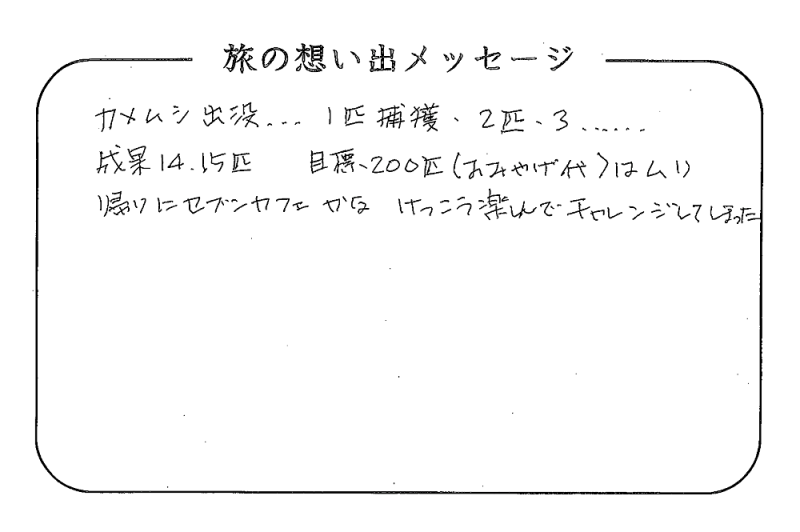 旅の想い出メッセージ
カメムシ出没… 1匹捕獲、2匹、3……
成果14.15匹 目標、200匹(おみやげ代)はムリ
帰りにセブンカフェかな けっこう楽しんでチャレンジしてしまった